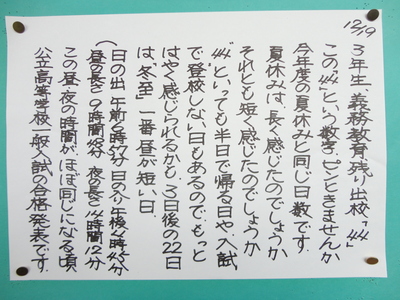 12/19
3年生、義務教育、残り出校、"44"
この"44"という数字、ピンときませんか
今年度の夏休みと同じ日数です。
夏休みは、長く感じたのでしょうか
それとも短く感じたのでしょうか
"44"といっても半日で帰る日や、入試
で登校しない日もあるので、もっと
はやく感じられるかも。3日後の22日
は、"冬至" 一番昼が短い日。
(日の出 午前6時57分 日の入り 午後4時45分
昼の長さ 9時間48分 夜の長さ 14時間12分)
この昼・夜の時間がほぼ同じになる頃
公立高等学校一般入試の合格発表です。